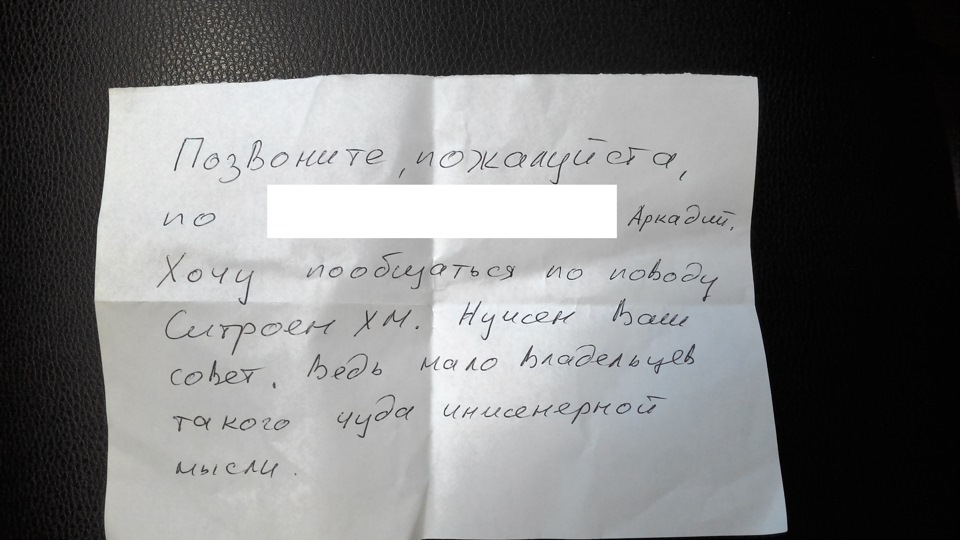 Позвоните, пожалуйста,
по Аркадий.
Хочу пообщаться по поводу
Ситроен ХМ. Нужен Ваш
совет. Ведь мало владельцев
такого чуда инженерной
мысли.